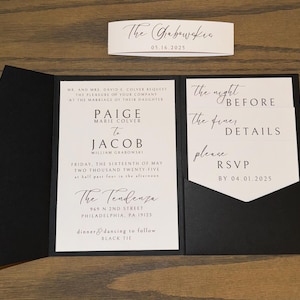 The Grabowskis
05.16.2025
MR. AND MRS. DAVID S. COLVER REQUEST
THE PLEASURE OF YOUR COMPANY
AT THE MARRIAGE OF THEIR DAUGHTER
PAIGE
MARIE COLVER
to
JACOB
WILLIAM GRABOWSKI
FRIDAY, THE FIFTEENTH OF MAY
TWO THOUSAND TWENTY-FIVE
at half past four in the afternoon
The Tendenza
969 N 2ND STREET
PHILADELPHIA, PA 19123
dinner & dancing to follow
BLACK TIE
the night
BEFORE
the finer
DETAILS
please
RSVP
BY 04.01.2025